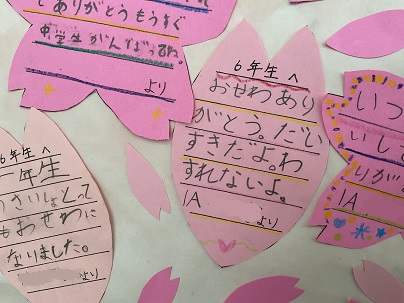 てありがとうもうすぐ
中学生がんばってね。
より
6年生へ
おせわあり
がとう。だい
すきだよ。わ
すれないよ。
1A
より
6年生へ
一年生
さいしょとって
もおせわに
なりました。
より
いつ
いしょ
りが
1A